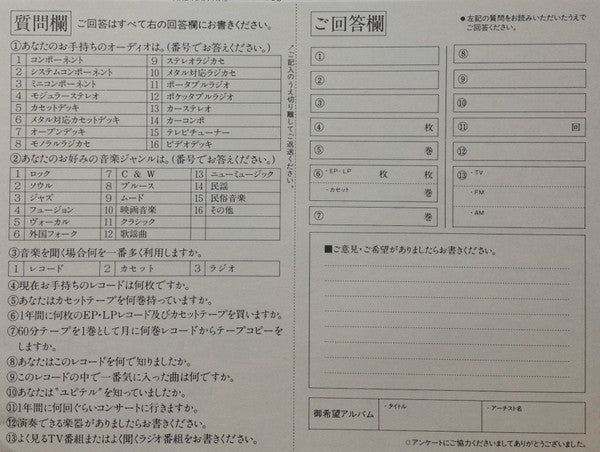 質問欄
ご回答はすべて右の回答欄にお書きください。
①あなたのお手持ちのオーディオは。(番号でお答えください。)
1 コンポーネント 9 ステレオラジカセ
2 システムコンポーネント 10 メタル対応ラジカセ
3 ミニコンポーネント 11 ポータブルラジオ
4 モジュラーステレオ 12 ポケッタブルラジオ
5 カセットデッキ 13 カーステレオ
6 メタル対応カセットデッキ 14 カーコンポ
7 オープンデッキ 15 テレビチューナー
8 モノラルラジカセ 16 ビデオデッキ
②あなたのお好みの音楽ジャンルは。(番号でお答えください。)
1 ロック 7 C & W 13 ニューミュージック
2 ソウル 8 ブルース 14 民謡
3 ジャズ 9 ムード 15 民俗音楽
4 フュージョン 10 映画音楽 16 その他
5 ヴォーカル 11 クラシック
6 外国フォーク 12 歌謡曲
③音楽を聞く場合何を一番多く利用しますか。
1 レコード 2 カセット 3 ラジオ
④現在お手持ちのレコードは何枚ですか。
⑤あなたはカセットテープを何巻持っていますか。
⑥1年間に何枚のEP・LPレコード及びカセットテープを買いますか。
⑦60分テープを1巻として月に何巻レコードからテープコピーを
しますか。
⑧あなたはこのレコードを何で知りましたか。
⑨このレコードの中で一番気に入った曲は何ですか。
⑩あなたは"ユピテル"を知っていましたか。
⑪1年間に何回ぐらいコンサートに行きますか。
⑫演奏できる楽器がありましたらお書きください。
⑬よく見るTV番組またはよく聞くラジオ番組をお書きください。
ご記入のうえ切り離してご返送ください。
ご回答欄
●左記の質問をお読みいただいたうえで
ご回答ください。
①
②
③
④ 枚
⑤ 巻
⑥ ・EP・LP 枚 枚
・カセット 巻
⑦ 巻
⑧
⑨
⑩
⑪ 回
⑫
⑬ ・TV
・FM
・AM
■ご意見・ご希望がありましたらお書きください。
御希望アルバム ・タイトル ・アーチスト名
○アンケートにご協力くださいましてありがとうございました。